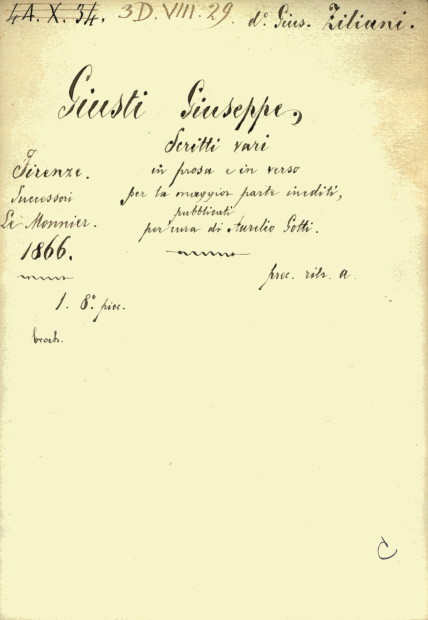 4A.X.34. 3D.VIII.29. d.º Gius. Ziliani.
Giusti Giuseppe,
Scritti vari
in prosa e in verso
per la maggior parte inediti,
pubblicati
per cura di Aurelio Gotti.
Firenze.
Successori
Le Monnier.
1866.
prec. ritr. a
1. 8.º picc.
broch.
C